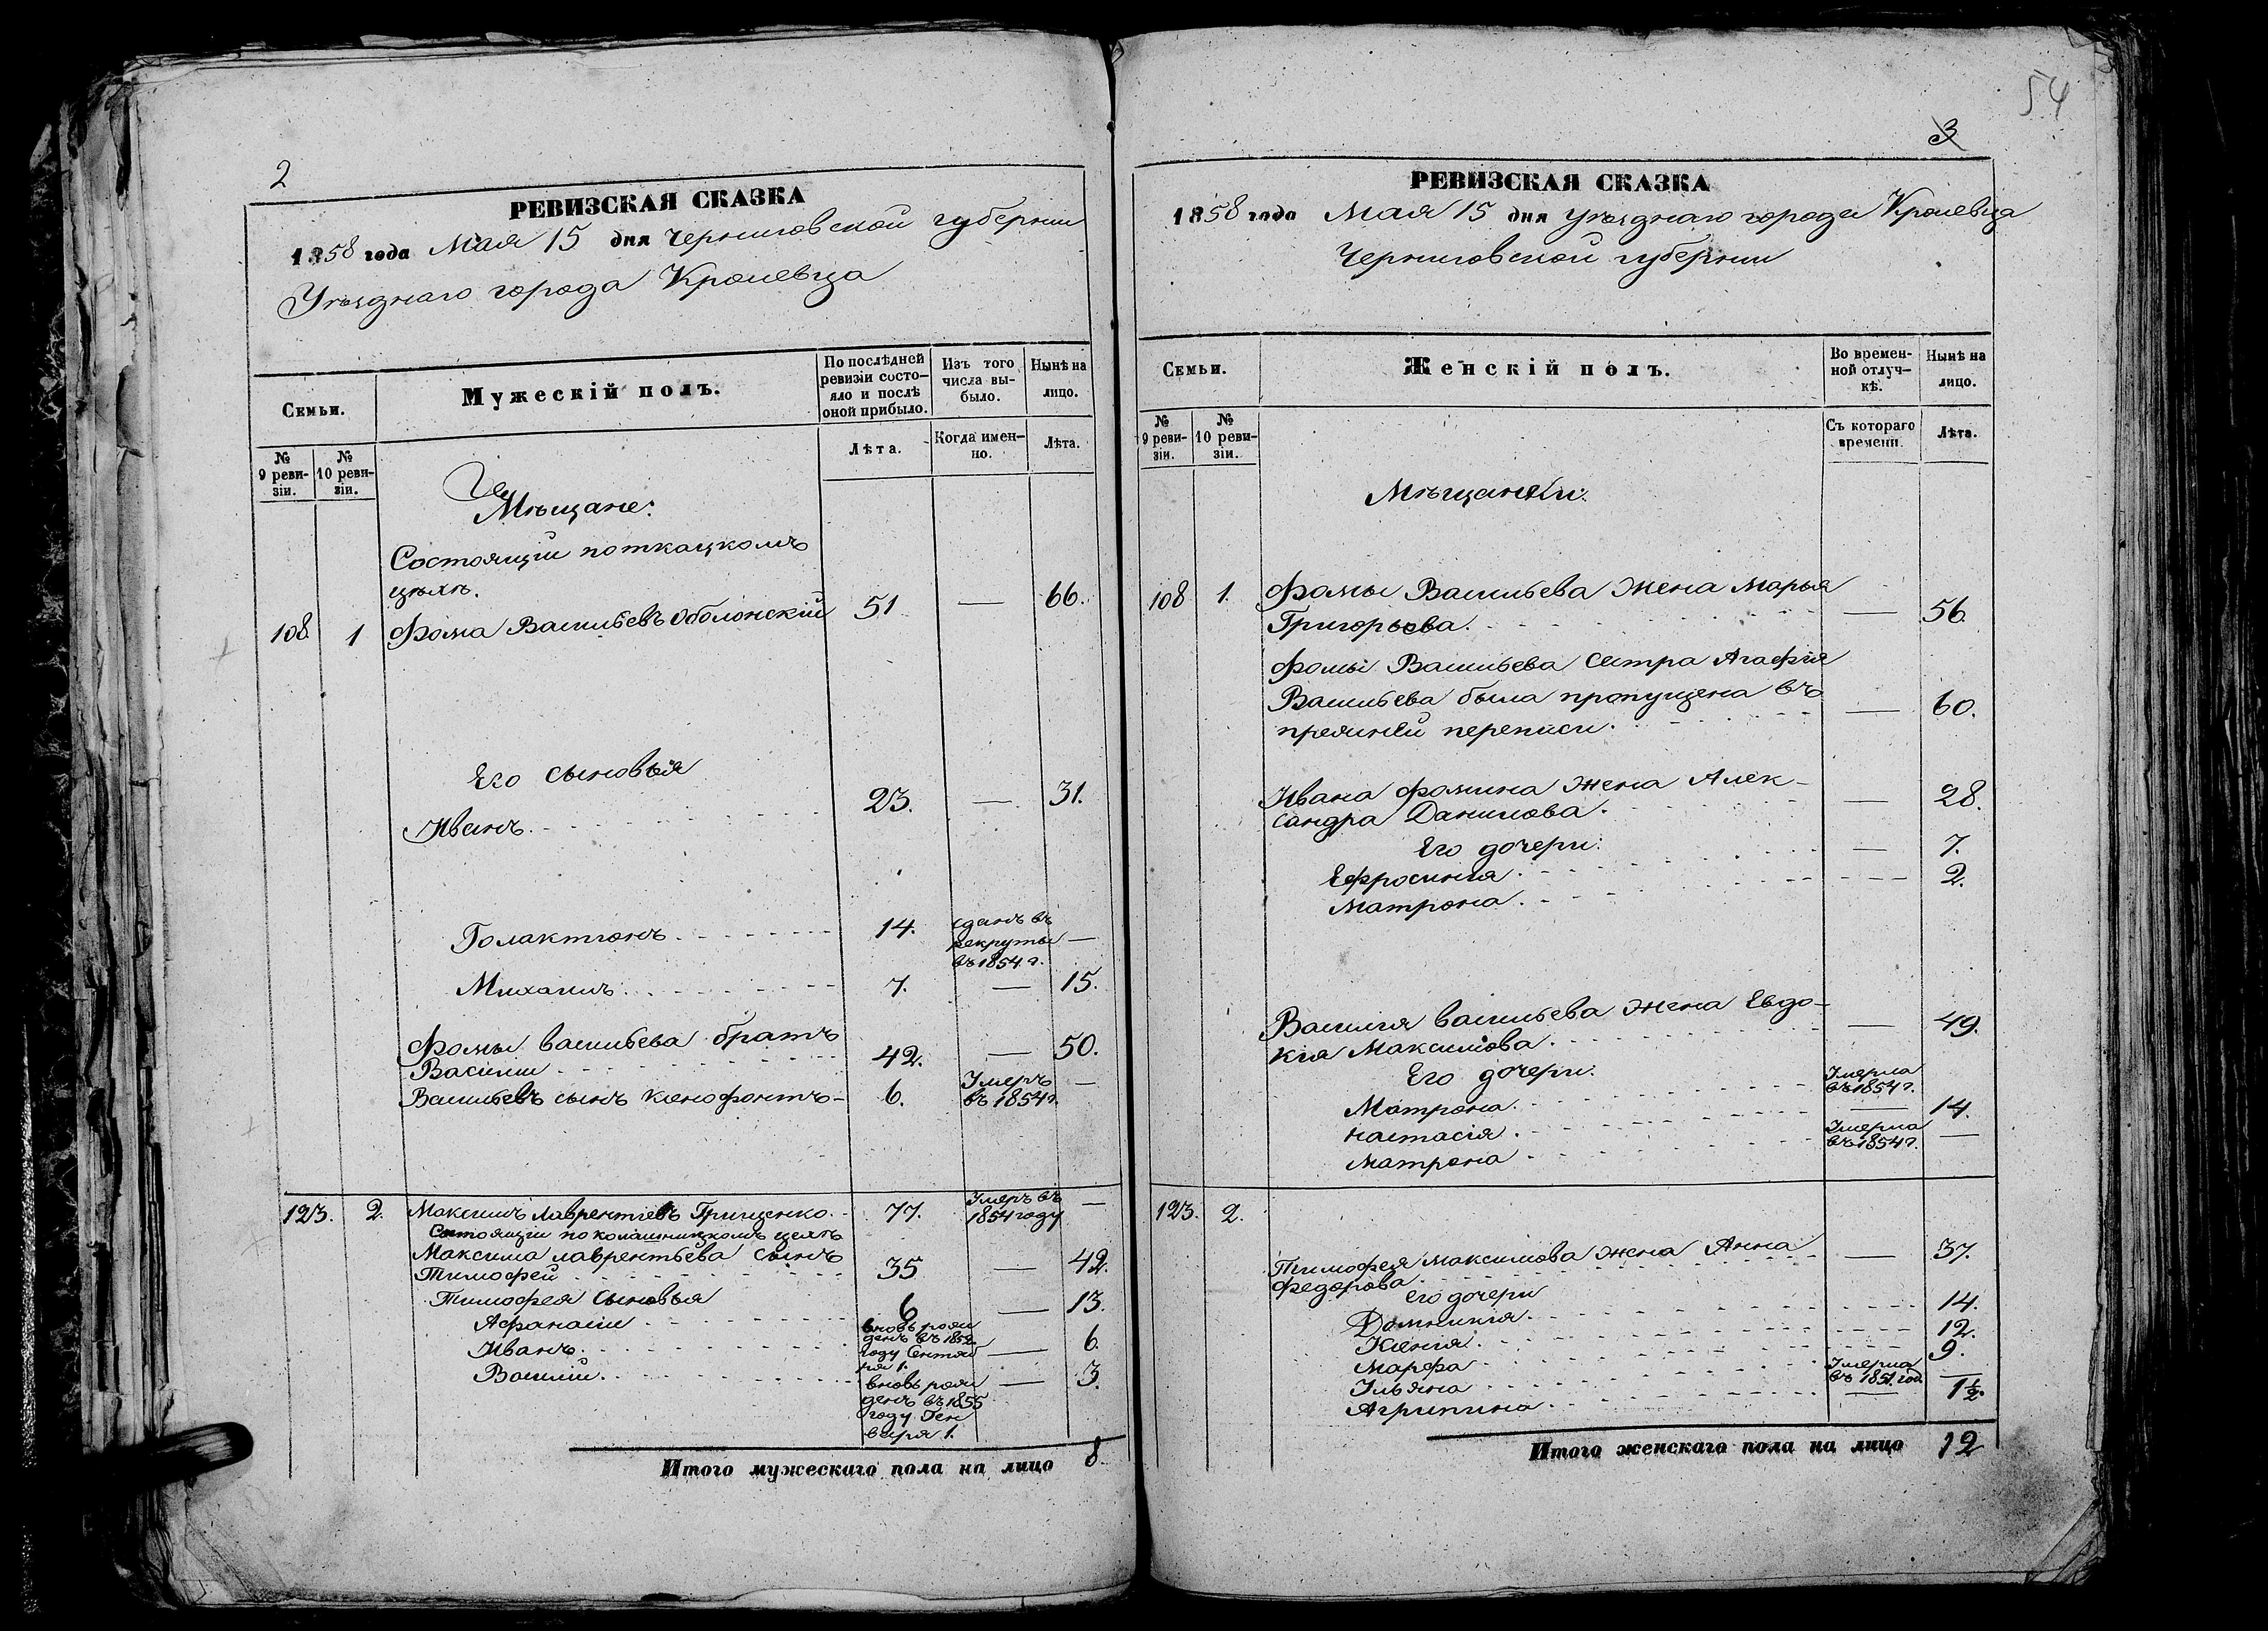 2
РЕВИЗСКАЯ СКАЗКА
1858 года Мая 15 дня Черниговской губернии
Уѣзднаго города Кролевца
Семьи.
Мужескій полъ.
По послѣдней ревизіи состо-яло и послѣ оной прибыло.
Изъ того числа вы-было.
Нынѣ на лицо.
№ 9 реви-зіи.
№ 10 реви-зіи.
Лѣта.
Когда имен-но.
Лѣта.
Мѣщане:
Состоящіи по ткацкомъ
цѣхѣ.
108 1 Фома Васильевъ Оболонскій 51 — 66.
Его сыновья
Иванъ. 23. — 31.
Голактіонъ. 14. сданъ въ рекруты въ 1854 г. —
Михаилъ. 7. — 15.
Фомы Васильева братъ
Василии 42. — 50.
Васильевъ сынъ Ксенофонтъ 6. Умеръ въ 1854 г. —
123. 2. Максимъ Лаврентіевъ Грищенко. 77. Умеръ въ 1854 году —
Состоящіи по цехѣ
Максима Лаврентьева сынъ
Тимофей 35 — 42.
Тимофея сыновья
Афанасии 6 — 13.
Иванъ. вновь рожденъ въ 1852 году Сентября 1. — 6.
Василій. вновь рожденъ въ 1855 году Генваря 1. — 3.
Итого мужескаго пола на лицо 8
54
3
РЕВИЗСКАЯ СКАЗКА
1858 года Мая 15 дня Уѣзднаго города Кролевца
Черниговской губернии
Семьи.
Женскій полъ.
Во времен-ной отлуч-кѣ.
Нынѣ на лицо.
№ 9 реви-зіи.
№ 10 реви-зіи.
Съ котораго времени.
Лѣта.
Мѣщанки:
108 1. Фомы Васильева жена Марья
Григорьева. — 56
Фомы Васильева сестра Агафія
Васильева была пропущена въ
прежней переписи. — 60.
Ивана Фомина жена Алек-
сандра Данилова. — 28.
Его дочери:
Ефросинія. — 7.
Матрона. 2.
Василія Васильева жена Евдо-
кія Максимова. — 49.
Его дочери:
Матрона. Умерла въ 1854 г.
Настасія. — 14.
Матрона Умерла въ 1854 г. —
123. 2.
Тимофея Максимова жена Анна
Федорова — 37.
Его дочери
Домникія. 14.
Ксенія. 12.
Марфа 9.
Ульяна Умерла въ 1851 год. —
Агрипина — 1½.
Итого женскаго пола на лицо 12